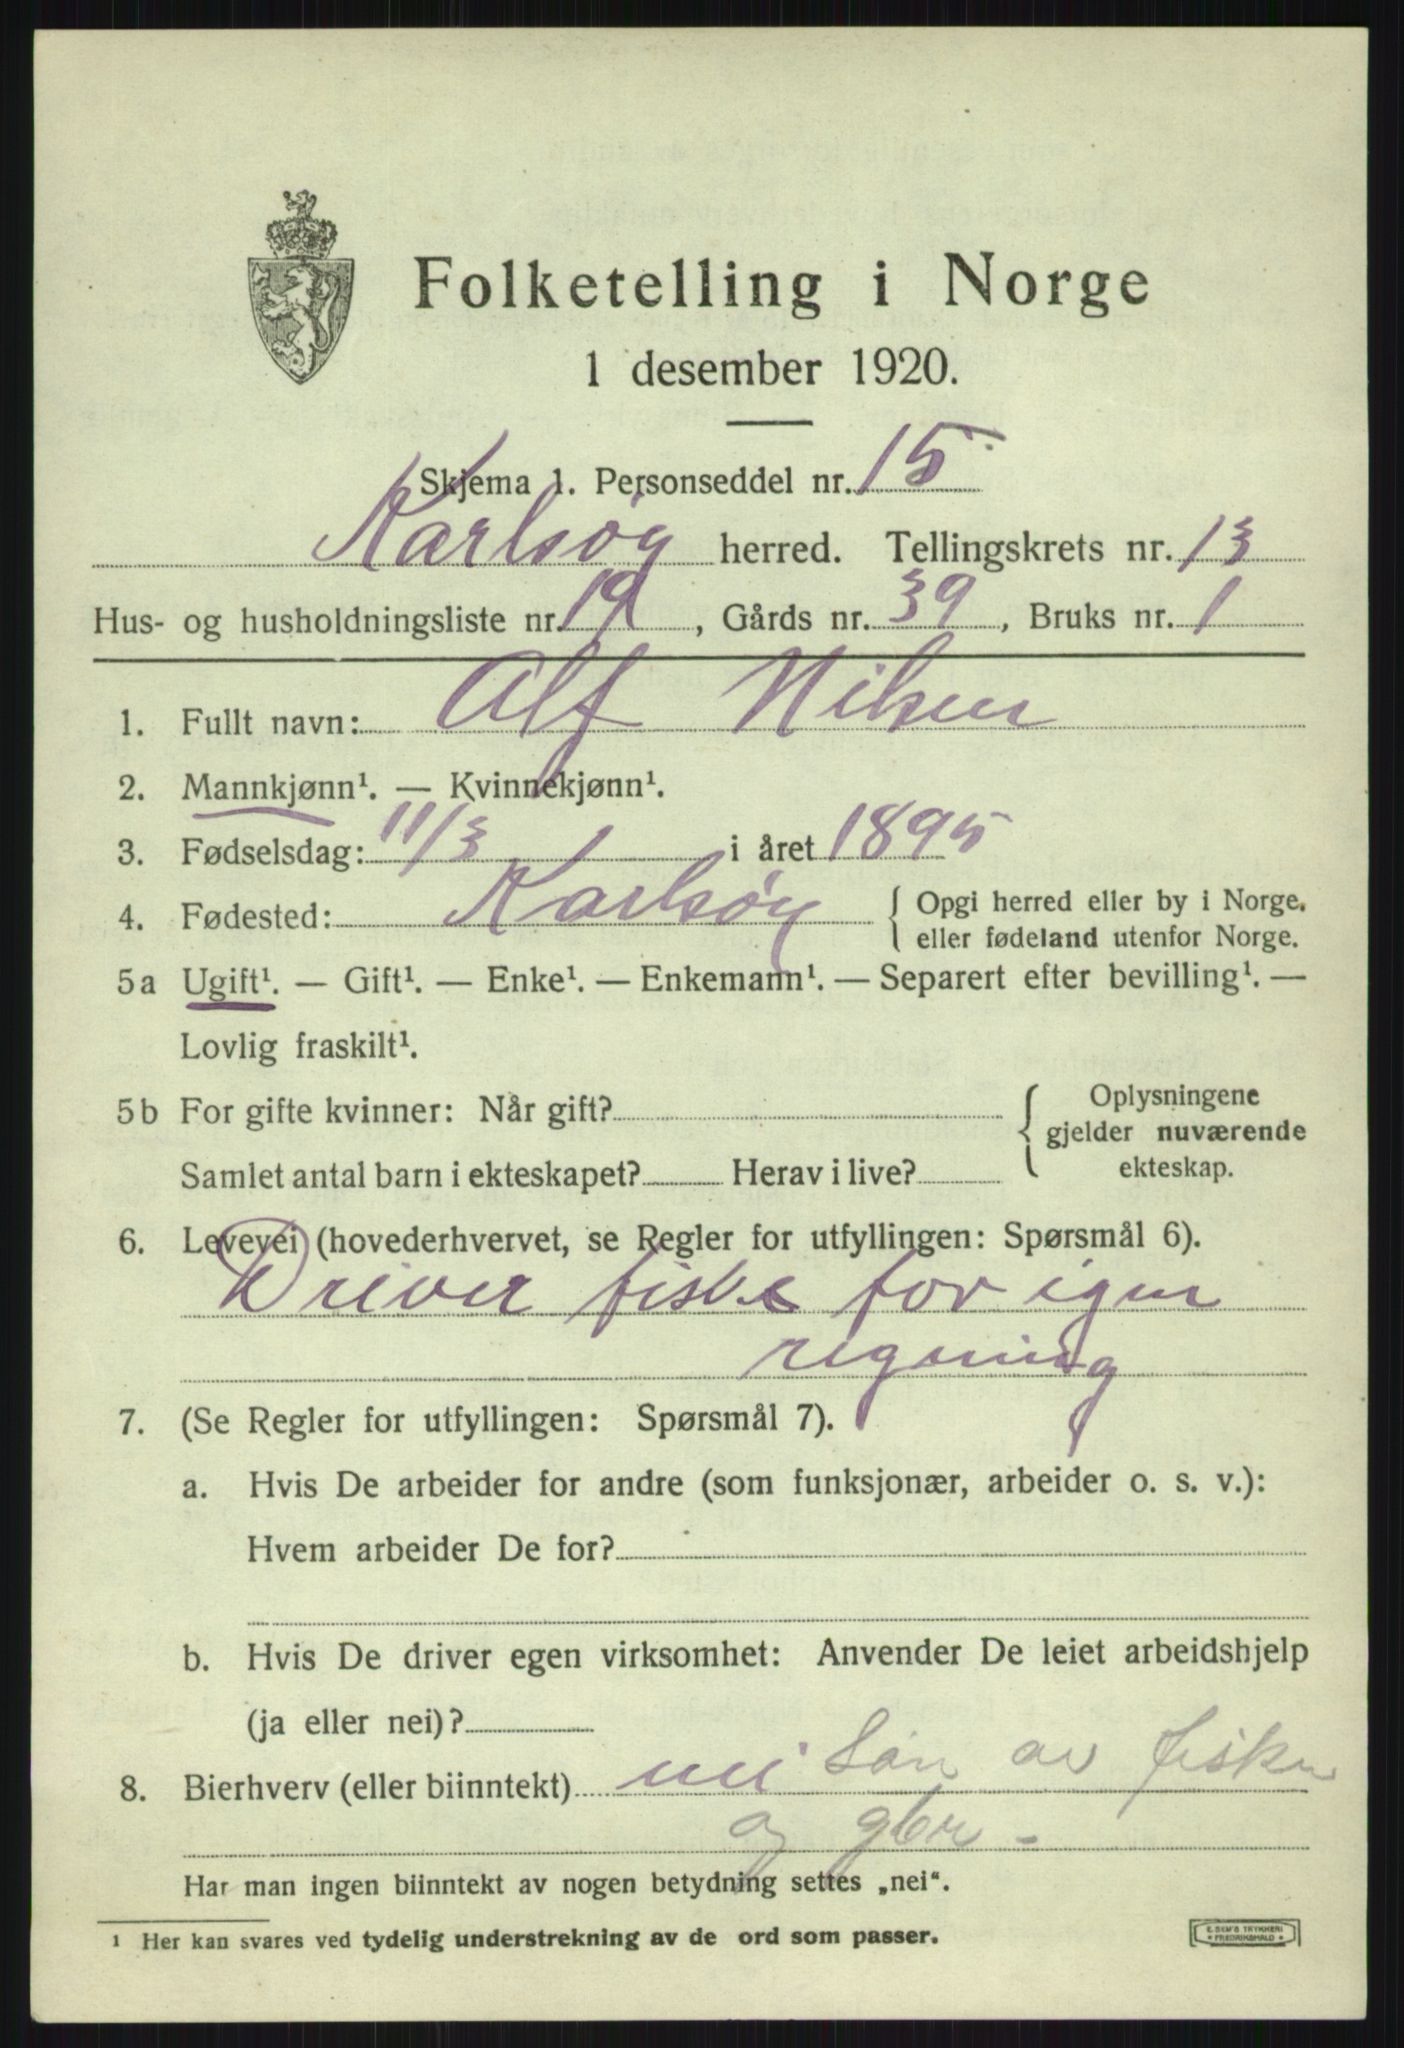 Folketelling i Norge
1 desember 1920.
Skjema 1. Personseddel nr. 15
Karlsøy herred. Tellingskrets nr. 13
Hus- og husholdningsliste nr. 19, Gårds nr. 39, Bruks nr. 1
1. Fullt navn: Alf Nilsen
2. Mannkjønn¹. — Kvinnekjønn¹.
3. Fødselsdag: 11/3 i året 1895
4. Fødested: Karlsøy { Opgi herred eller by i Norge, eller fødeland utenfor Norge.
5a Ugift¹. — Gift¹. — Enke¹. — Enkemann¹. — Separert efter bevilling¹. —
Lovlig fraskilt¹.
5b For gifte kvinner: Når gift? { Oplysningene gjelder nuværende ekteskap.
Samlet antal barn i ekteskapet? Herav i live?
6. Levevei (hovederhvervet, se Regler for utfyllingen: Spørsmål 6).
Driver fiske for igen
regning
7. (Se Regler for utfyllingen: Spørsmål 7).
a. Hvis De arbeider for andre (som funksjonær, arbeider o. s. v.):
Hvem arbeider De for?
b. Hvis De driver egen virksomhet: Anvender De leiet arbeidshjelp
(ja eller nei)?
8. Bierhverv (eller biinntekt) nei Søn av fisker
og gbr -
Har man ingen biinntekt av nogen betydning settes „nei“.
¹ Her kan svares ved tydelig understrekning av de ord som passer.
E. SEM'S TRYKKERI
FREDRIKSHALD